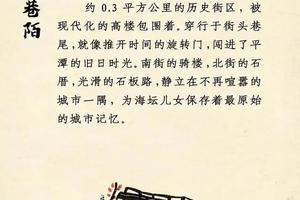 巷陌
约 0.3 平方公里的历史街区，被
现代化的高楼包围着。穿行于街头巷
尾，就像推开时间的旋转门，闯进了平
潭的旧日时光。南街的骑楼，北街的石
厝，光滑的石板路，静立在不再喧嚣的
城市一隅，为海坛儿女保存着最原始
的城市记忆。